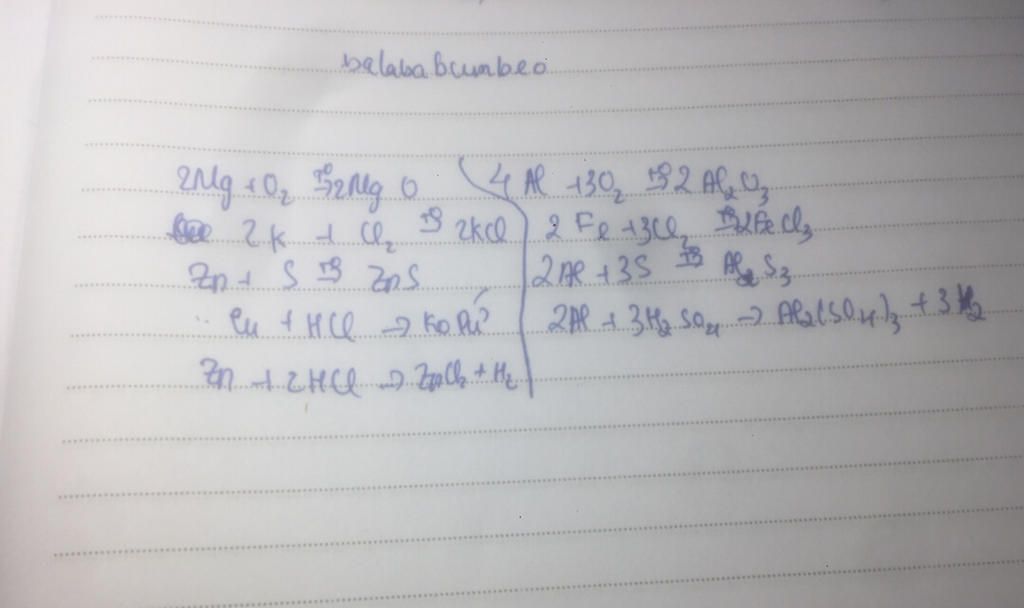 balababcumbeo
2Mg + O2 t°→ 2MgO
2K + Cl2 t°→ 2KCl
Zn + S t°→ ZnS
Cu + HCl → Ko Pứ
Zn + 2HCl → ZnCl2 + H2
4Al + 3O2 t°→ 2Al2O3
2Fe + 3Cl2 t°→ 2FeCl3
2Al + 3S t°→ Al2S3
2Al + 3H2SO4 → Al2(SO4)3 + 3H2